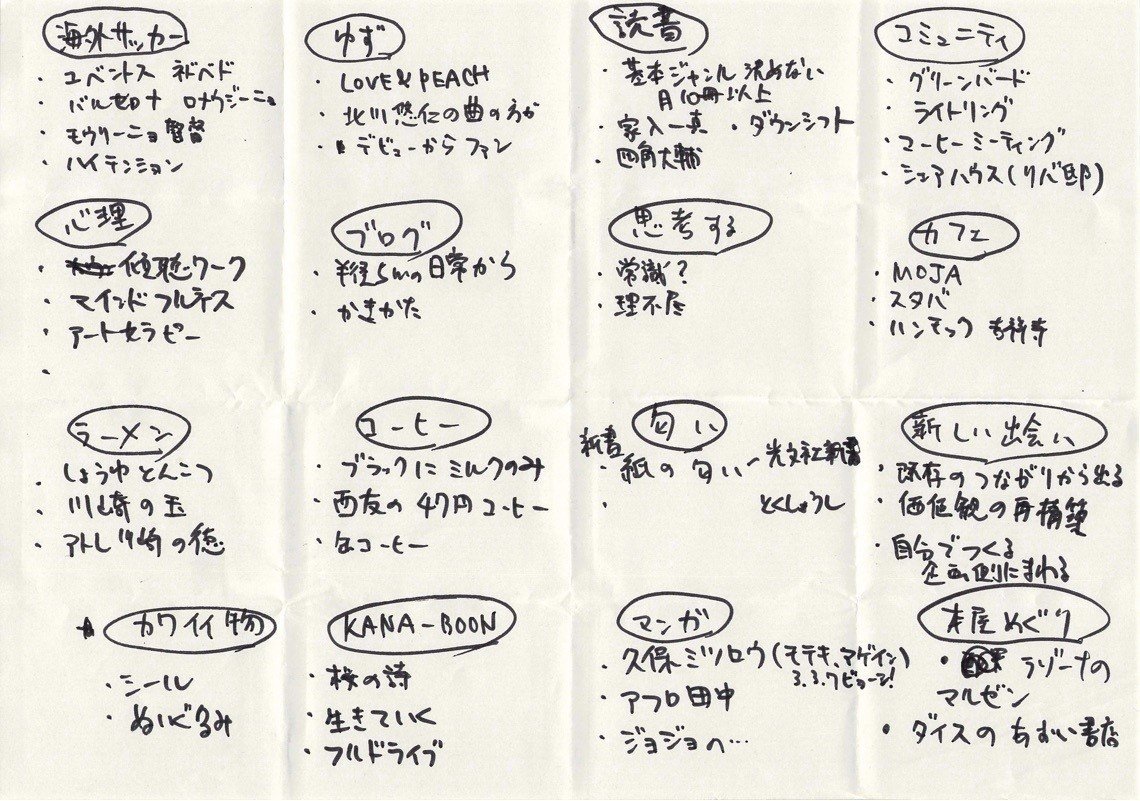 海外サッカー
・ユベントス ネドベド
・バルセロナ ロナウジーニョ
・モウリーニョ監督
・ハイテンション
ゆず
・LOVE & PEACH
・北川悠仁の曲の方が
・デビューからファン
読書
・基本ジャンル決めない
月10冊以上
・家入一真 ・ダウンシフト
・四角大輔
コミュニティ
・グリーンバード
・ライトリング
・コーヒーミーティング
・シェアハウス(リバ邸)
心理
・傾聴ワーク
・マインドフルネス
・アートセラピー
・
ブログ
・半径5mの日常から
・かきかた
思考する
・常識?
・理不尽
カフェ
・MOJA
・スタバ
・ハンモック 吉祥寺
ラーメン
・しょうゆとんこつ
・川崎の玉
・アトレ川崎の徳
コーヒー
・ブラックにミルクのみ
・西友の47円コーヒー
・缶コーヒー
匂い
新書
・紙の匂い
光文社新書
・
とくしょうし
新しい出会い
・既存のつながりから出る
・価値観の再構築
・自分でつくる
企画側にまわる
カワイイ物
・シール
・ぬいぐるみ
KANA-BOON
・桜の詩
・生きていく
・フルドライブ
マンガ
・久保ミツロウ(モテキ、アゲイン)
3.3.7ビョーシ!
・アフロ田中
・ジョジョの…
本屋めぐり
・ラゾーナの
マルゼン
・ダイスのあおい書店